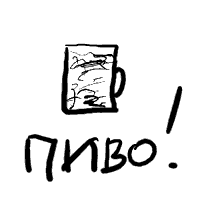 ПИВО!